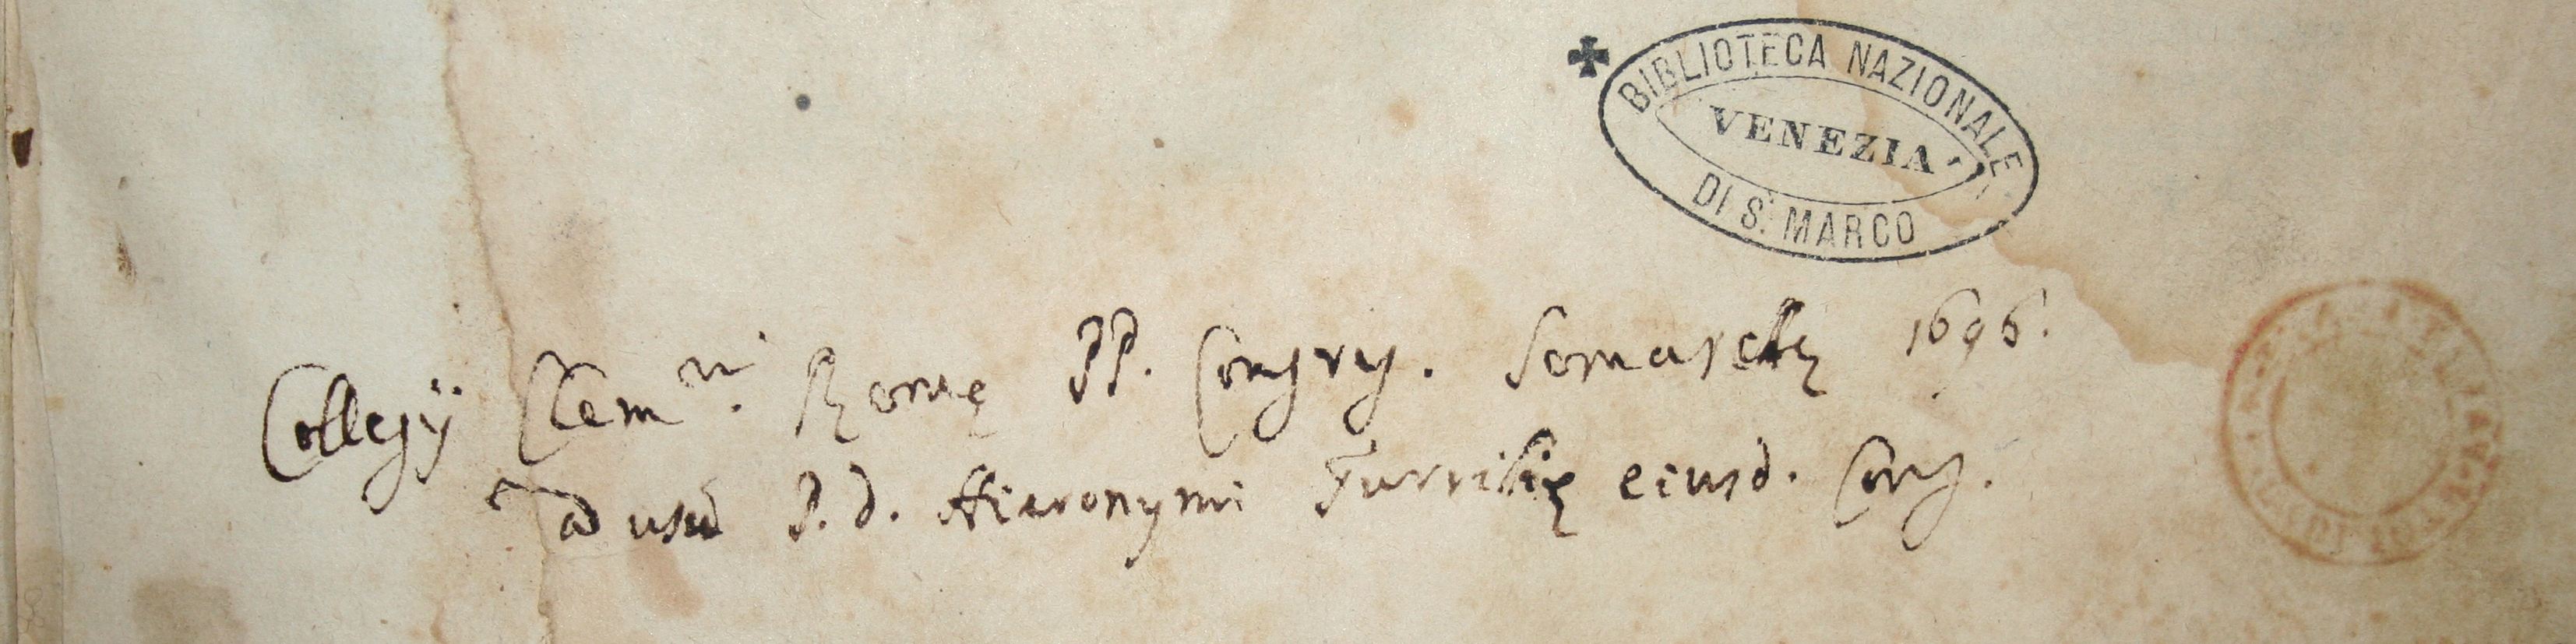 BIBLIOTECA NAZIONALE
VENEZIA
DI S. MARCO
Collegÿ Clem.ni Romę PP. Congr.
Somaschę 1696.
ad usū P. D. Hieronymi
eiusd. Cong.